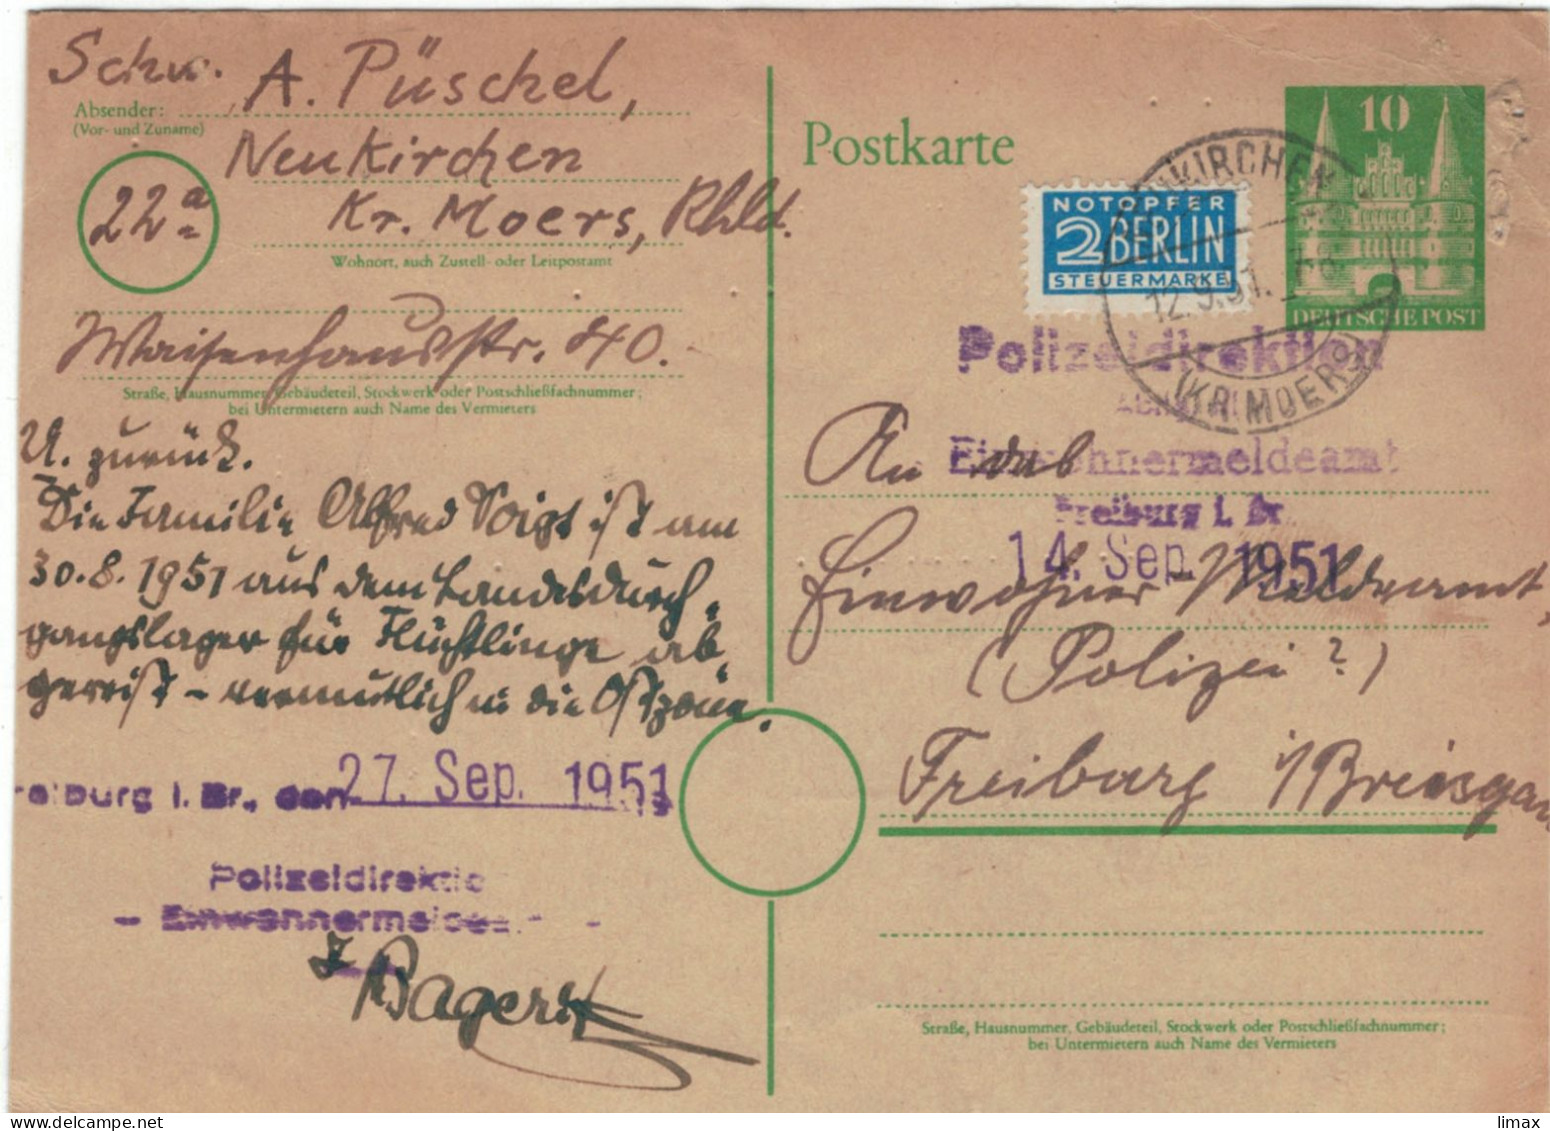 Schw. A. Püschel,
Absender:
(Vor- und Zuname)
Neukirchen
22a
Kr. Moers, Rhld.
Wohnort, auch Zustell- oder Leitpostamt
Waisenhausstr. 40.
Straße, Hausnummer, Gebäudeteil, Stockwerk oder Postschließfachnummer;
bei Untermietern auch Name des Vermieters
U. zurück.
Die Familie Alfred Voigt ist am
30.8.1951 aus dem Landesdurch-
gangslager für Flüchtlinge ab-
gereist - vermutlich in die Ostzone.
reiburg i. Br., den 27. Sep. 1951
Polizeidirektio
- Einwohnermeldea -
Postkarte
NOTOPFER
2 BERLIN
STEUERMARKE
10
DEUTSCHE POST
KIRCHEN
12.9.51.
(KR. MOERS)
Polizeidirektion
Einwohnermeldeamt
Freiburg i. Br
14. Sep. 1951
An das
Einwohner Meldeamt,
(Polizei?)
Freiburg i/Breisgau
Straße, Hausnummer, Gebäudeteil, Stockwerk oder Postschließfachnummer;
bei Untermietern auch Name des Vermieters
limax